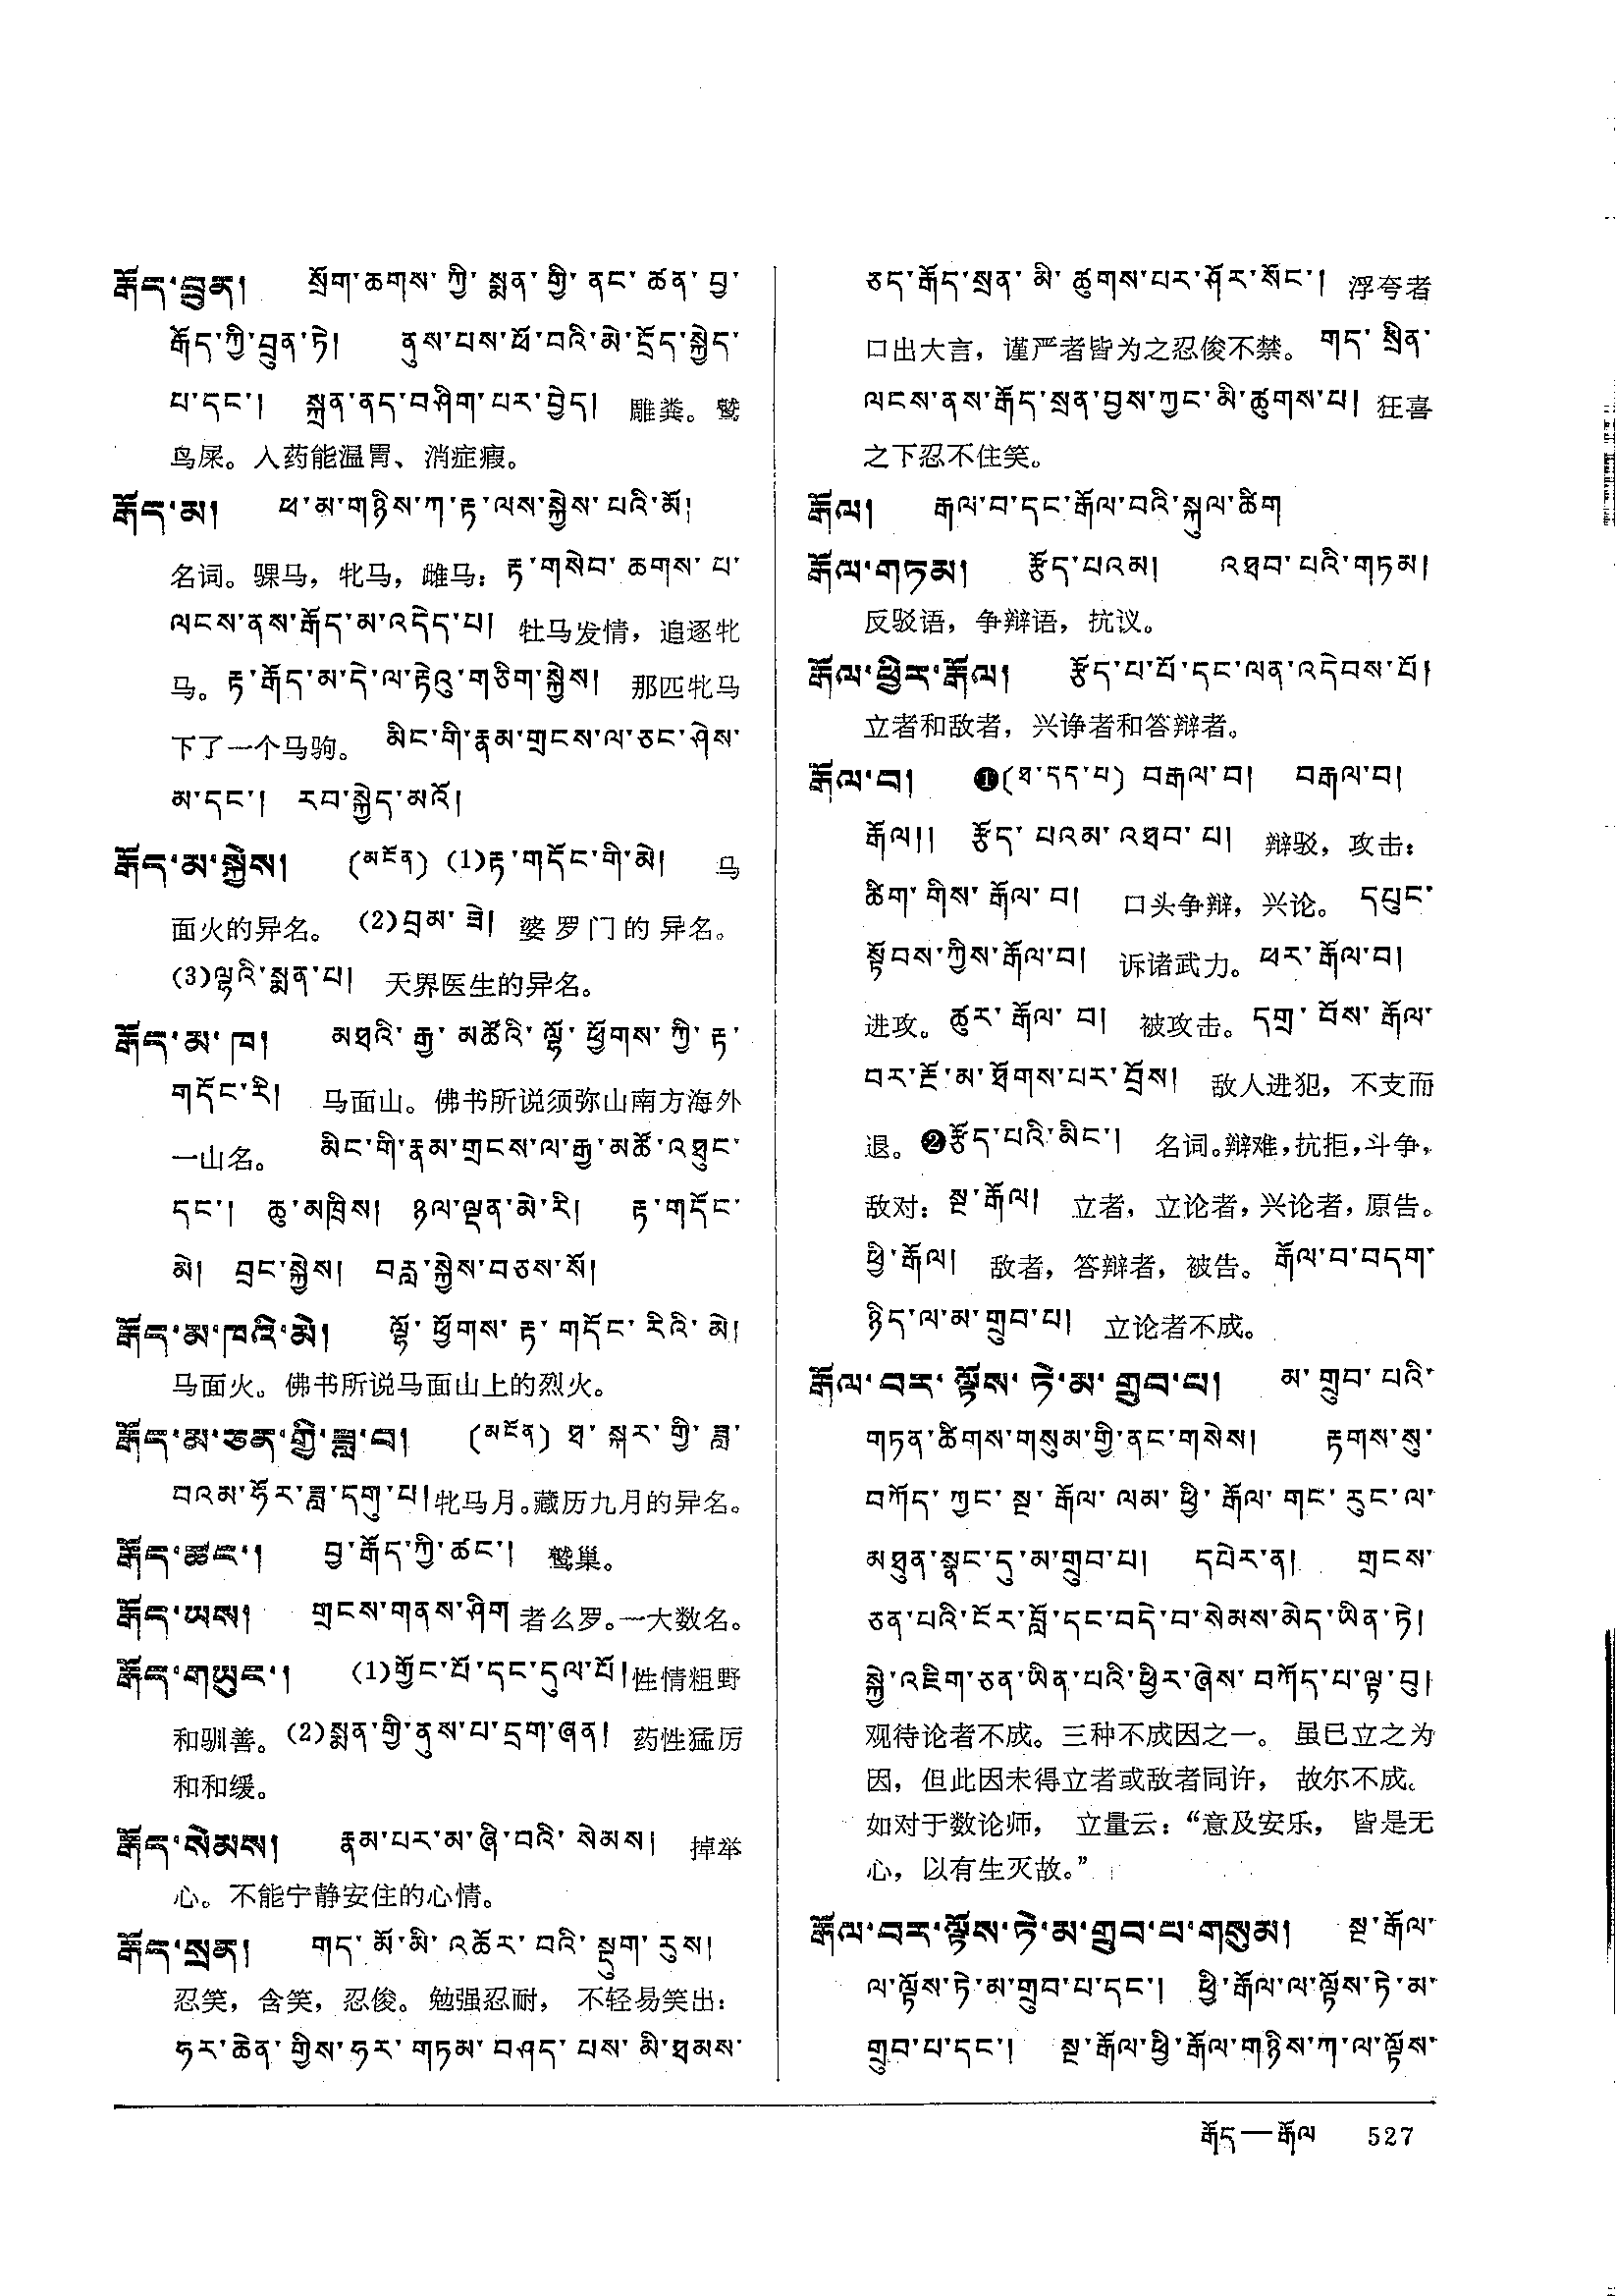 རྒོད་བྲུན། སྲོག་ཆགས་ཀྱི་སྨན་གྱི་ནང་ཚན་བྱ་
རྒོད་ཀྱི་བྲུན་ཏེ། ནུས་པས་ཕོ་བའི་མེ་དྲོད་སྐྱེད་
པ་དང་། སྐྲན་ནད་བཤིག་པར་བྱེད། 雕粪。鹫
鸟屎。入药能温胃、消症瘕。
རྒོད་མ། ཕ་མ་གཉིས་ཀ་རྟ་ལས་སྐྱེས་པའི་མོ།
名词。骒马，牝马，雌马：རྟ་གསེབ་ཆགས་པ་
ལངས་ནས་རྒོད་མ་འདེད་པ། 牡马发情，追逐牝
马。རྟ་རྒོད་མ་དེ་ལ་རྟེའུ་གཅིག་སྐྱེས། 那匹牝马
下了一个马驹。 མིང་གི་རྣམ་གྲངས་ལ་ཅང་ཤེས་
མ་དང་། རབ་སྐྱེད་མའོ།
རྒོད་མ་སྐྱེས། (མངོན) (1)རྟ་གདོང་གི་མེ། 马
面火的异名。(2)བྲམ་ཟེ། 婆罗门的异名。
(3)ལྷའི་སྨན་པ། 天界医生的异名。
རྒོད་མ་ཁ། མཐའི་རྒྱ་མཚོའི་ལྷོ་ཕྱོགས་ཀྱི་རྟ་
གདོང་རི། 马面山。佛书所说须弥山南方海外
一山名。 མིང་གི་རྣམ་གྲངས་ལ་རྒྱ་མཚོ་འཐུང་
དང་། ཆུ་མཁྲིས། ཉལ་ལྡན་མེ་རི། རྟ་གདོང་
མེ། བྲང་སྐྱེས། བརླ་སྐྱེས་བཅས་སོ།
རྒོད་མ་ཁའི་མེ། ལྷོ་ཕྱོགས་རྟ་གདོང་རིའི་མེ།
马面火。佛书所说马面山上的烈火。
རྒོད་མ་ཅན་གྱི་ཟླ་བ། (མངོན) ཐ་སྐར་གྱི་ཟླ་
བའམ་ཧོར་ཟླ་དགུ་པ།牝马月。藏历九月的异名。
རྒོད་ཚང་། བྱ་རྒོད་ཀྱི་ཚང་། 鹫巢。
རྒོད་ཡས། གྲངས་གནས་ཤིག 者么罗。一大数名。
རྒོད་གཡུང་། (1)གྱོང་པོ་དང་དུལ་པོ།性情粗野
和驯善。(2)སྨན་གྱི་ནུས་པ་དྲག་ཞན། 药性猛厉
和和缓。
རྒོད་སེམས། རྣམ་པར་མ་ཞི་བའི་སེམས། 掉举
心。不能宁静安住的心情。
རྒོད་སྲན། གད་མོ་མི་འཆོར་བའི་སྡུག་རུས།
忍笑，含笑，忍俊。勉强忍耐，不轻易笑出：
ཧར་ཆེན་གྱིས་ཧར་གཏམ་བཤད་པས་མི་ཐམས་
ཅད་རྒོད་སྲན་མི་ཚུགས་པར་ཤོར་སོང་། 浮夸者
口出大言，谨严者皆为之忍俊不禁。གད་སྲིན་
ལངས་ནས་རྒོད་སྲན་བྱས་ཀྱང་མི་ཚུགས་པ། 狂喜
之下忍不住笑。
རྒོལ། རྒལ་བ་དང་རྒོལ་བའི་སྐུལ་ཚིག
རྒོལ་གཏམ། རྩོད་པའམ། འཐབ་པའི་གཏམ།
反驳语，争辩语，抗议。
རྒོལ་ཕྱིར་རྒོལ། རྩོད་པ་པོ་དང་ལན་འདེབས་པོ།
立者和敌者，兴诤者和答辩者。
རྒོལ་བ། ❶(ཐ་དད་པ) བརྒལ་བ། བརྒལ་བ།
རྒོལ།། རྩོད་པའམ་འཐབ་པ། 辩驳，攻击：
ཚིག་གིས་རྒོལ་བ། 口头争辩，兴论。དཔུང་
སྟོབས་ཀྱིས་རྒོལ་བ། 诉诸武力。ཕར་རྒོལ་བ།
进攻。ཚུར་རྒོལ་བ། 被攻击。དགྲ་བོས་རྒོལ་
བར་ངོ་མ་ཐོགས་པར་བྲོས། 敌人进犯，不支而
退。❷རྩོད་པའི་མིང་། 名词。辩难，抗拒，斗争，
敌对：སྔ་རྒོལ། 立者，立论者，兴论者，原告。
ཕྱི་རྒོལ། 敌者，答辩者，被告。རྒོལ་བ་བདག་
ཉིད་ལ་མ་གྲུབ་པ། 立论者不成。
རྒོལ་བར་ལྟོས་ཏེ་མ་གྲུབ་པ། མ་གྲུབ་པའི་
གཏན་ཚིགས་གསུམ་གྱི་ནང་གསེས། རྟགས་སུ་
བཀོད་ཀྱང་སྔ་རྒོལ་ལམ་ཕྱི་རྒོལ་གང་རུང་ལ་
མཐུན་སྣང་དུ་མ་གྲུབ་པ། དཔེར་ན། གྲངས་
ཅན་པའི་ངོར་བློ་དང་བདེ་བ་སེམས་མེད་ཡིན་ཏེ།
སྐྱེ་འཇིག་ཅན་ཡིན་པའི་ཕྱིར་ཞེས་བཀོད་པ་ལྟ་བུ།
观待论者不成。三种不成因之一。虽已立之为
因，但此因未得立者或敌者同许，故尔不成。
如对于数论师，立量云：“意及安乐，皆是无
心，以有生灭故。”
རྒོལ་བར་ལྟོས་ཏེ་མ་གྲུབ་པ་གསུམ། སྔ་རྒོལ་
ལ་ལྟོས་ཏེ་མ་གྲུབ་པ་དང་། ཕྱི་རྒོལ་ལ་ལྟོས་ཏེ་མ་
གྲུབ་པ་དང་། སྔ་རྒོལ་ཕྱི་རྒོལ་གཉིས་ཀ་ལ་ལྟོས་
རྒོད—རྒོལ 527